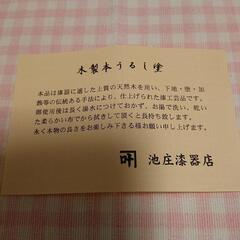 木製本うるし塗
本品は漆器に適した上質の天然木を用い、下地・塗・加
飾等の伝統ある手法により、仕上げられた漆工芸品です。
御使用後は長く湯水につけておかず、お湯で洗い、乾い
た柔らかい布でから拭きして頂くと長持ち致します。
永く本物の良さをお楽しみ下さる様お願い申し上げます。
池庄漆器店